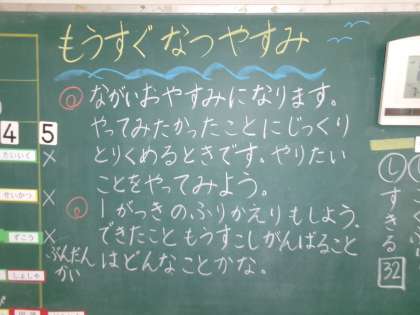 もうすぐなつやすみ
ながいおやすみになります。
やってみたかったことにじっくり
とりくめるときです。やりたい
ことをやってみよう。
1がっきのふりかえりもしよう。
できたことともうすこしがんばること
はどんなことかな。
4 5
たいいく
せいかつ
ずこう
ぶんだん
かい
しょしゃ
すきる
32